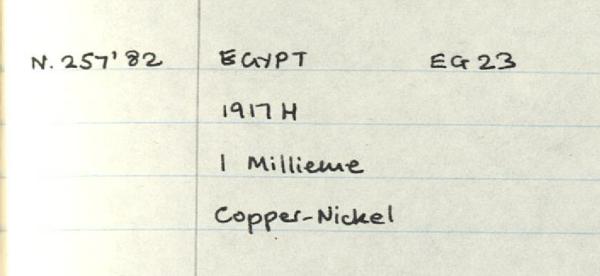 N. 257'82 EGYPT EG 23
1917 H
1 Millieme
Copper-Nickel